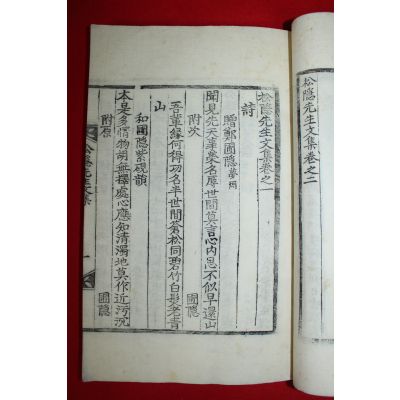 松隱先生文集卷之二
松隱先生文集卷之一
詩
贈鄭圃隱 夢周
聞見先天事業名辱世間莫言心內思不似早還山
附次 圃隱
吾輩緣何得功名半世間蒼松同翠竹白髮老青
山
和圃隱紫硯韻
太臬多情物胡無擇處心應知清濁地莫作近污沉
附原 圃隱
松隱先生文集